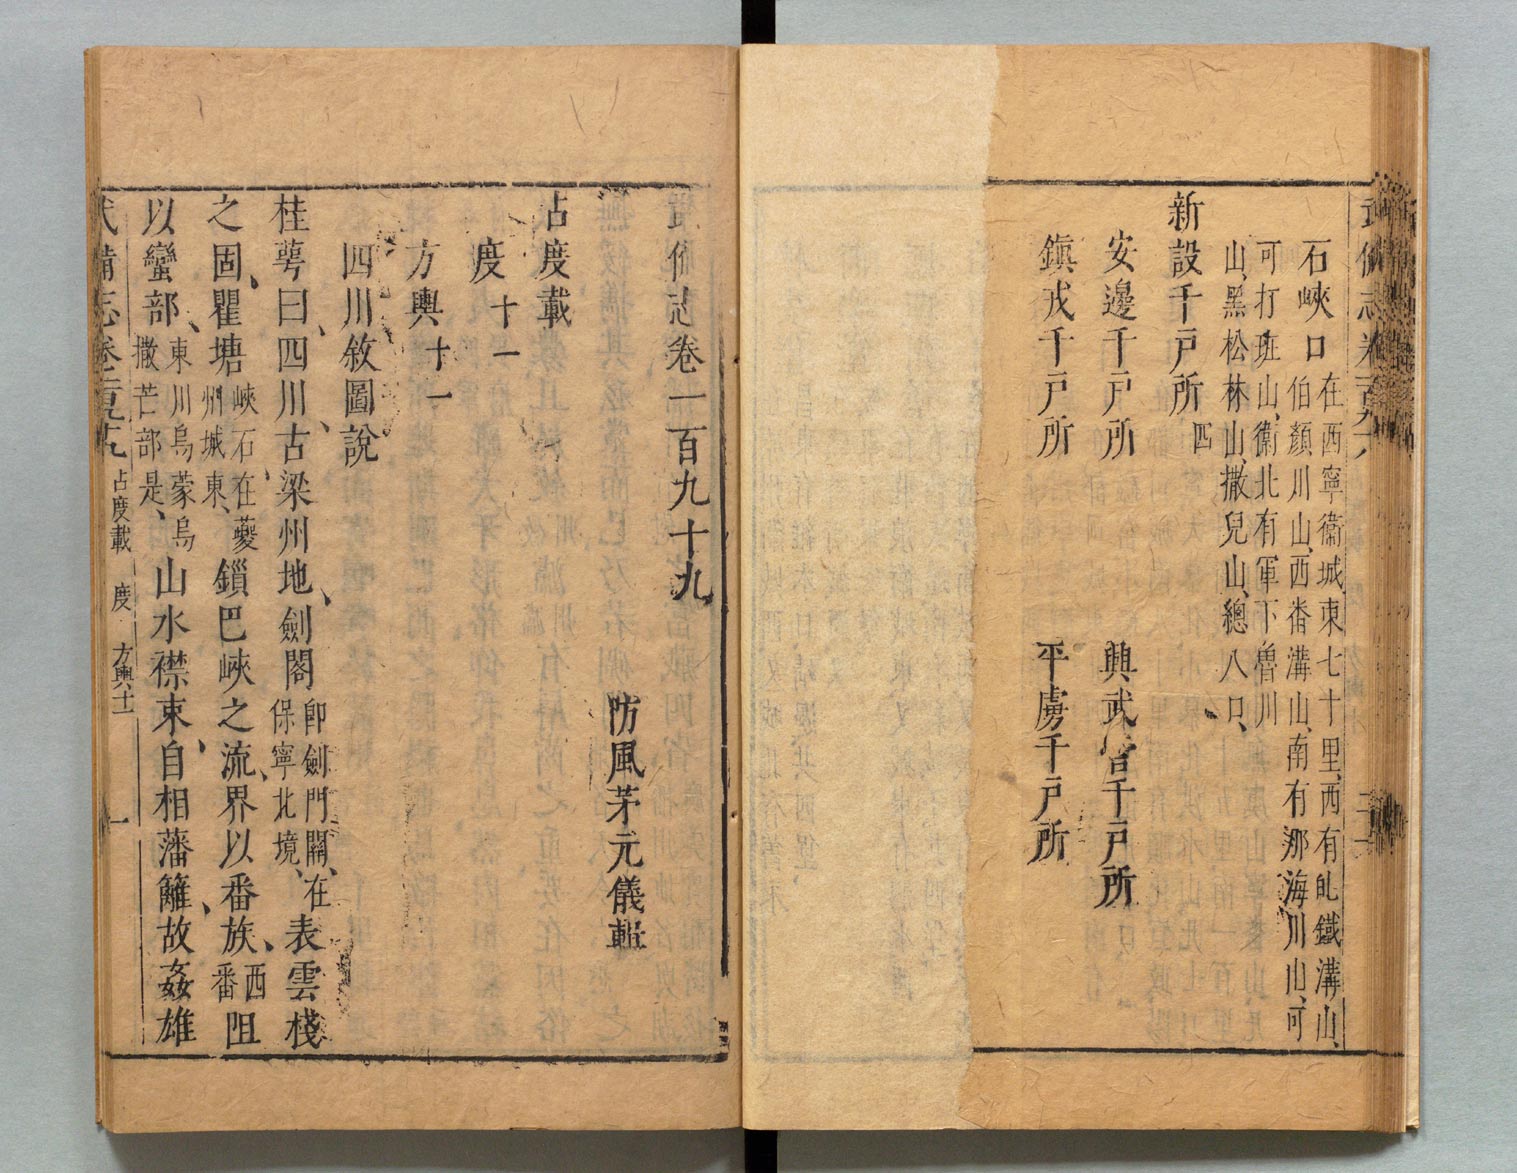 武備志卷
石峽口在西寧衛城東七十里、西有癿鐵溝山、
伯顏川山、西番溝山、南有那海川山、可
可打班山、衛北有軍下魯川
山、黑松林山、撒兒山、總八口、
新設千戶所四
安邊千戶所　興武營千戶所
鎮戎千戶所　平虜千戶所
武備志卷一百九十九
防風茅元儀輯
占度載
度十一
方輿十一
四川敘圖說
桂萼曰、四川、古梁州地、劍閣即劍門關、在保寧北境、表雲棧
之固、瞿塘峽石在夔州城東、鎖巴峽之流、界以番族、西番阻
以蠻部、東川烏蒙烏撒芒部是、山水襟束、自相藩籬、故姦雄
武備志卷一百九十九　占度載　度　方輿十一　一